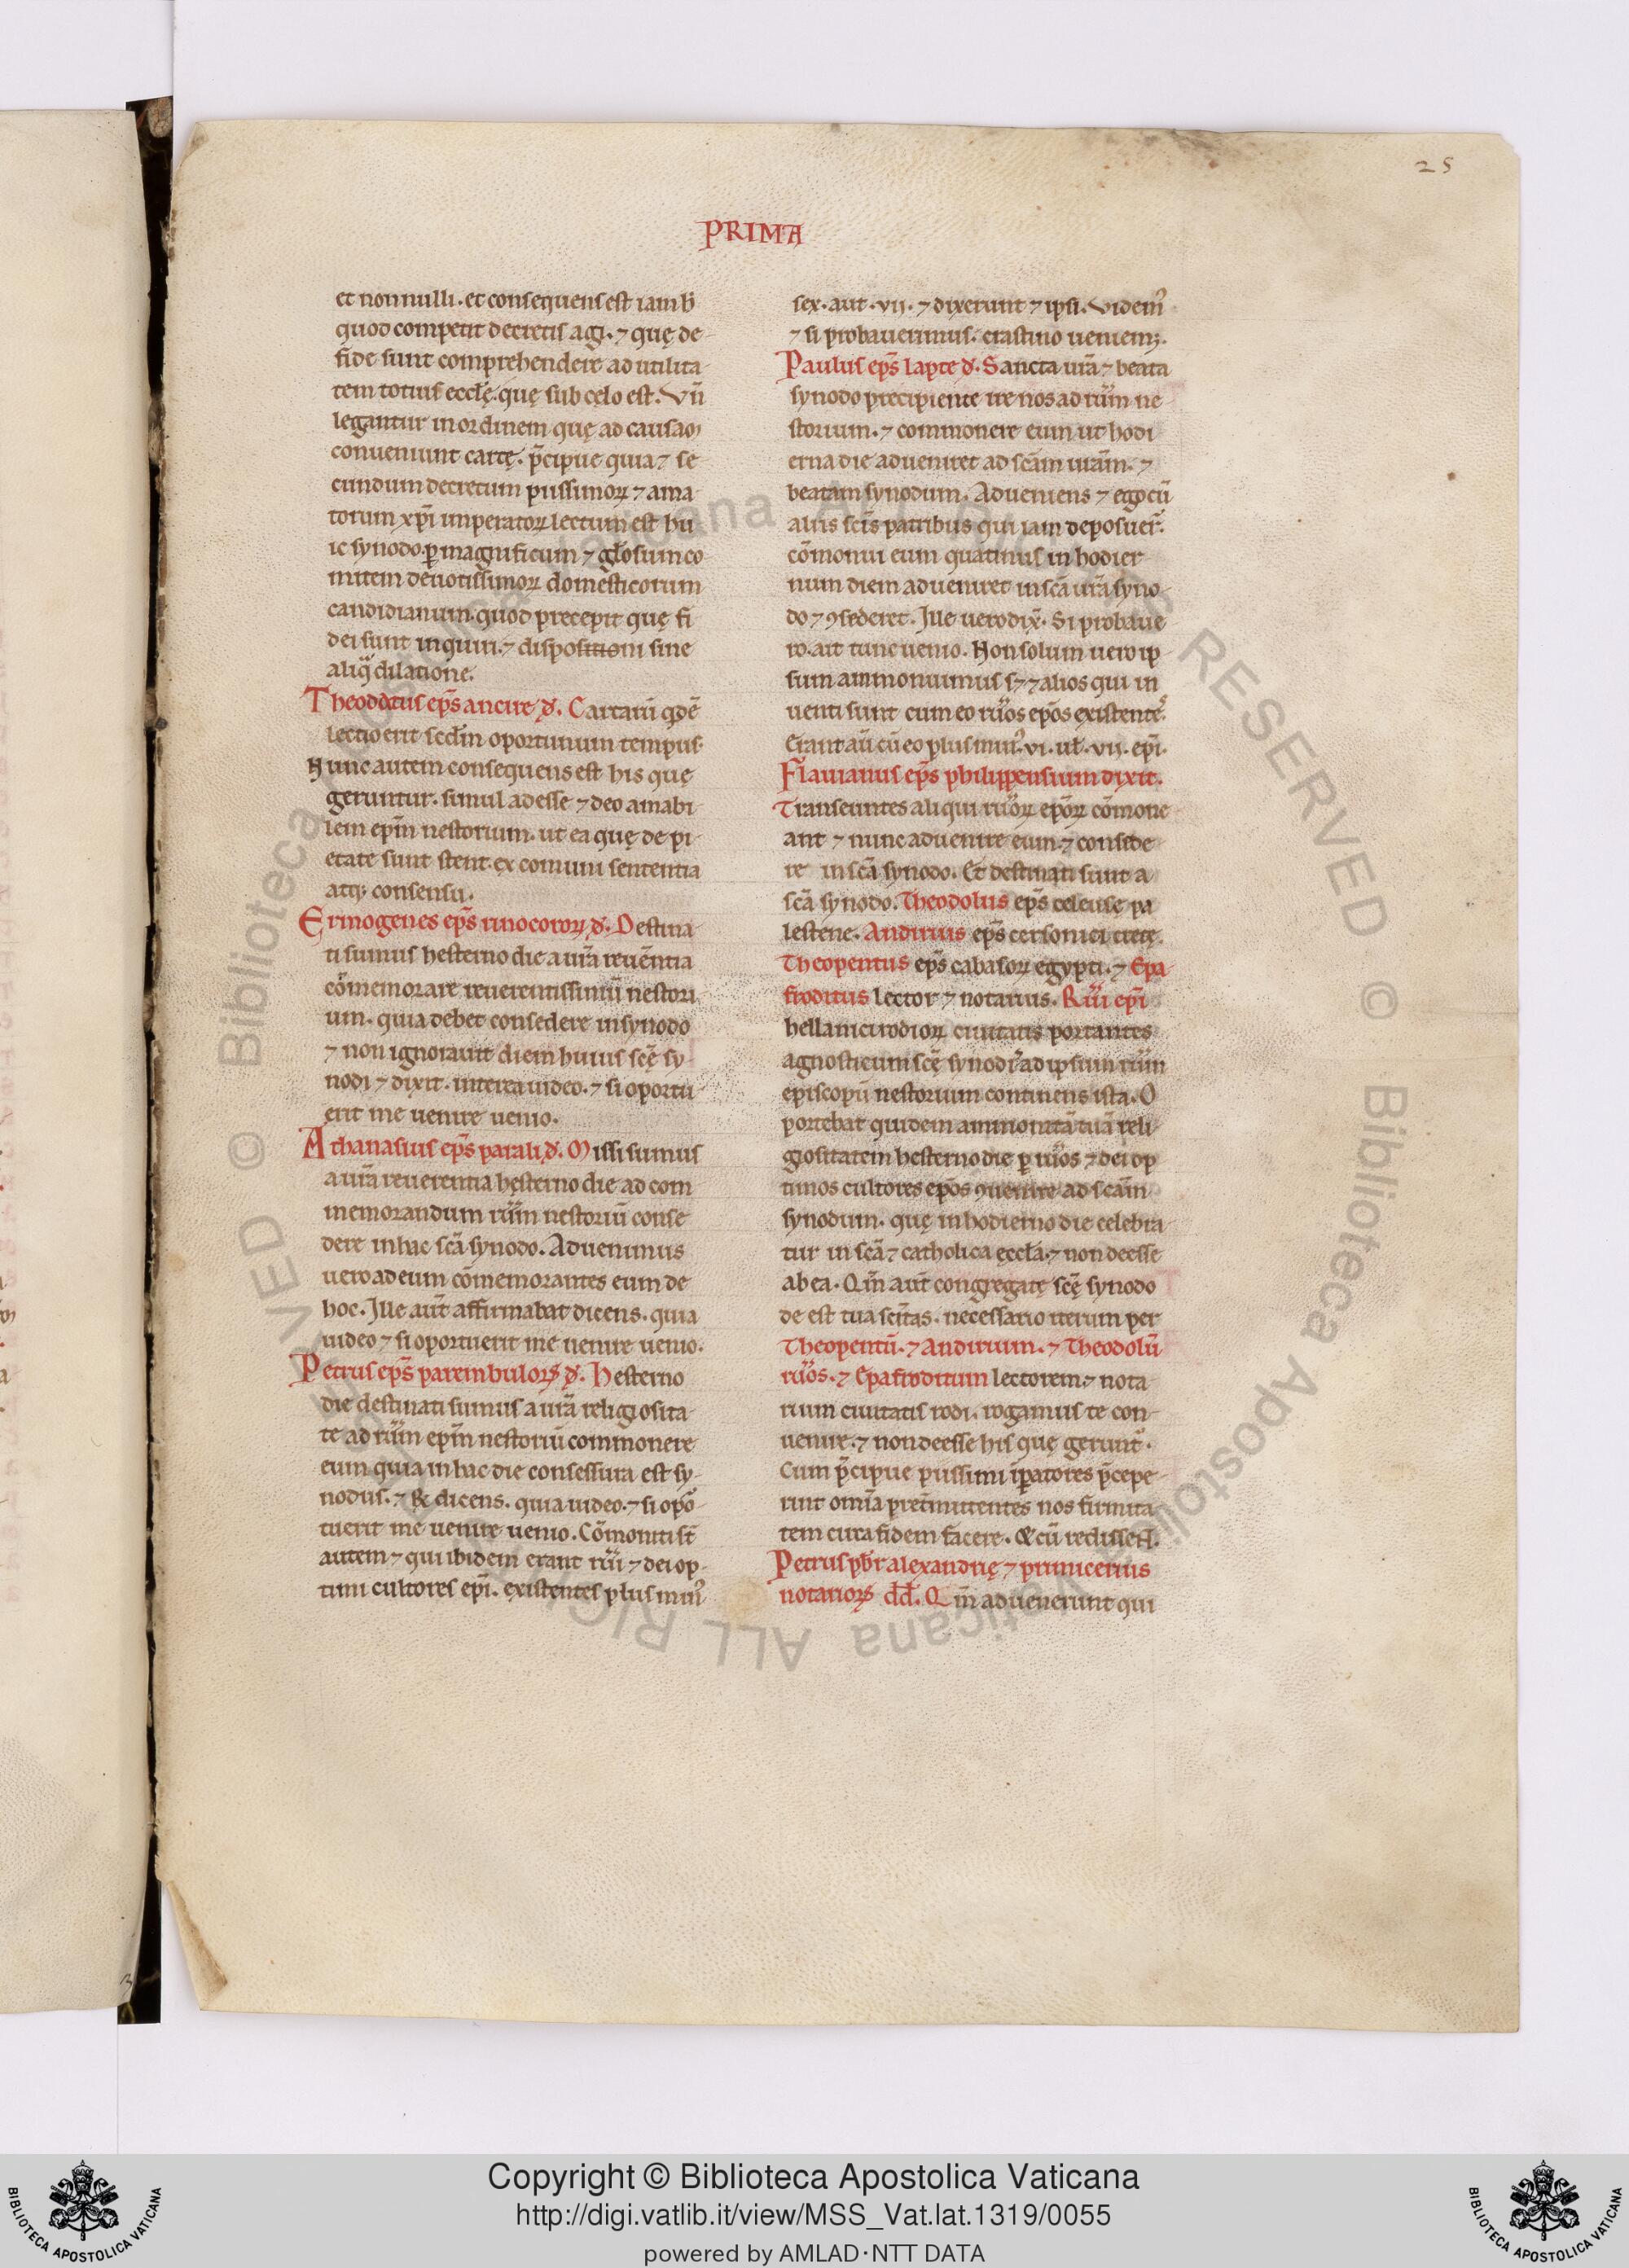 25
PRIMA
et nonnulli. et consequens est iam b̄
quod competit decretis agi. ⁊ quę de
fide sunt comprehendere ad utilita
tem totius eccl̄ę. quę sub cęlo est. Vn̄
legantur in ordinem quę ad causam
conueniunt cartę. p̄cipue quia ⁊ se
cundum decretum piissimoꝝ ⁊ ama
torum xp̄i imperatoꝝ lectum est hu
ic synodo. ꝑ magnificum ⁊ gl̄osum co
mitem deuotissimoꝝ domesticorum
candidianum. quod precepit quę fi
dei sunt inquiri. ⁊ dispositioni sine
aliq̄ dilatione.
Theodotus ep̄s ancire đ. Cartarū qđē
lectio erit scđm oportunum tempus.
Nunc autem consequens est his quę
geruntur. simul adesse ⁊ deo amabi
lem ep̄m nestorium. ut ea quę de pi
etate sunt stent. ex comuni sententia
atq; consensu.
Ermogenes ep̄s rinocoroꝝ đ. Destina
ti sumus hesterno die a ur̄a reuerentia
cōmemorare reuerentissimū nestori
um. quia debet consedere in synodo
⁊ non ignorauit diem huius scę̄ sy
nodi ⁊ dixit. interea uideo. ⁊ si oportu
erit me uenire uenio.
Athanasius ep̄s parali đ. Missi sumus
a ur̄a reuerentia hesterno die ad com
memorandum rūm nestoriū conse
dere in hac sc̄a synodo. Aduenimus
uero ad eum cōmemorantes eum de
hoc. Ille aut̄ affirmabat dicens. quia
uideo ⁊ si oportuerit me uenire uenio.
Petrus ep̄s parembuloꝝ đ. Hesterno
die destinati sumus a ur̄a religiosita
te ad rūm ep̄m nestoriū commonere
eum quia in hac die consessura est sy
nodus. ⁊ R dicens. quia uideo. ⁊ si opor
tuerit me uenire uenio. Cōmoniti st̄
autem ⁊ qui ibidem erant rūi ⁊ dei op
timi cultores ep̄i. existentes plus min᾿
sex. aut. vii. ⁊ dixerunt ⁊ ipsi. Videm᾿
⁊ si probauerimus. crastino ueniem;.
Paulus ep̄s lapte đ. Sancta ur̄a ⁊ beata
synodo precipiente ire nos ad rūm ne
storium. ⁊ commonere eum ut hodi
erna die adueniret ad scām urām. ⁊
beatam synodum. Adueniens ⁊ ego cū
aliis scīs patribus qui iam deposuer̄.
cōmonui eum quatinus in hodier
num diem adueniret in sc̄a ur̄a syno
do ⁊ ꝯsederet. Ille uero dix̄. Si probaue
ro. ait tunc uenio. Non solum uero ip
sum ammonuimus s; ⁊ alios qui in
uenti sunt cum eo rūos ep̄os existentes.
Erant aū cū eo plus min᾿. vi. ul̄. vii. ep̄i.
Flauianus ep̄s philippensium dixit.
Transeuntes aliqui rūoꝝ ep̄oꝝ cōmone
ant ⁊ nunc aduenire eum. ⁊ consede
re in sc̄a synodo. Et destinati sunt a
sc̄a synodo. Theodolus ep̄s celeuse pa
lestene. Andirius ep̄s cersonici cretę.
Theopentus ep̄s cabasoꝝ egypti. ⁊ Epa
froditus lector ⁊ notarius. Rūi ep̄i
hellanicirodioꝝ ciuitatis portantes
agnosticum scę̄ synodi ad ipsum rūm
episcopū nestorium continens ista. O
portebat quidem ammonitā tuā reli
giositatem hesterno die ꝑ rūos ⁊ dei op
timos cultores ep̄os ꝯuenire ad scām
synodum. quę in hodierno die celebra
tur in sc̄a ⁊ catholica ęccl̄a. ⁊ non deesse
ab ea. Qm̄ aut̄ congregatę scę̄ synodo
de est tua scītas. necessario iterum per
Theopentū. ⁊ Andirium. ⁊ Theodolū
rūos. ⁊ Epafroditum lectorem ⁊ nota
rium ciuitatis rodi. rogamus te con
uenire. ⁊ non deesse his quę gerunt᾿.
Cum p̄cipue piissimi īꝑatores p̄cepe
rint omīa pret̄mittentes nos firmita
tem circa fidem facere. Et cū redissent.
Petrus pb̄r alexandrię ⁊ primicerius
notarioꝝ dd̄. Qm̄ aduenerunt qui
Copyright © Biblioteca Apostolica Vaticana
http://digi.vatlib.it/view/MSS_Vat.lat.1319/0055
powered by AMLAD·NTT DATA